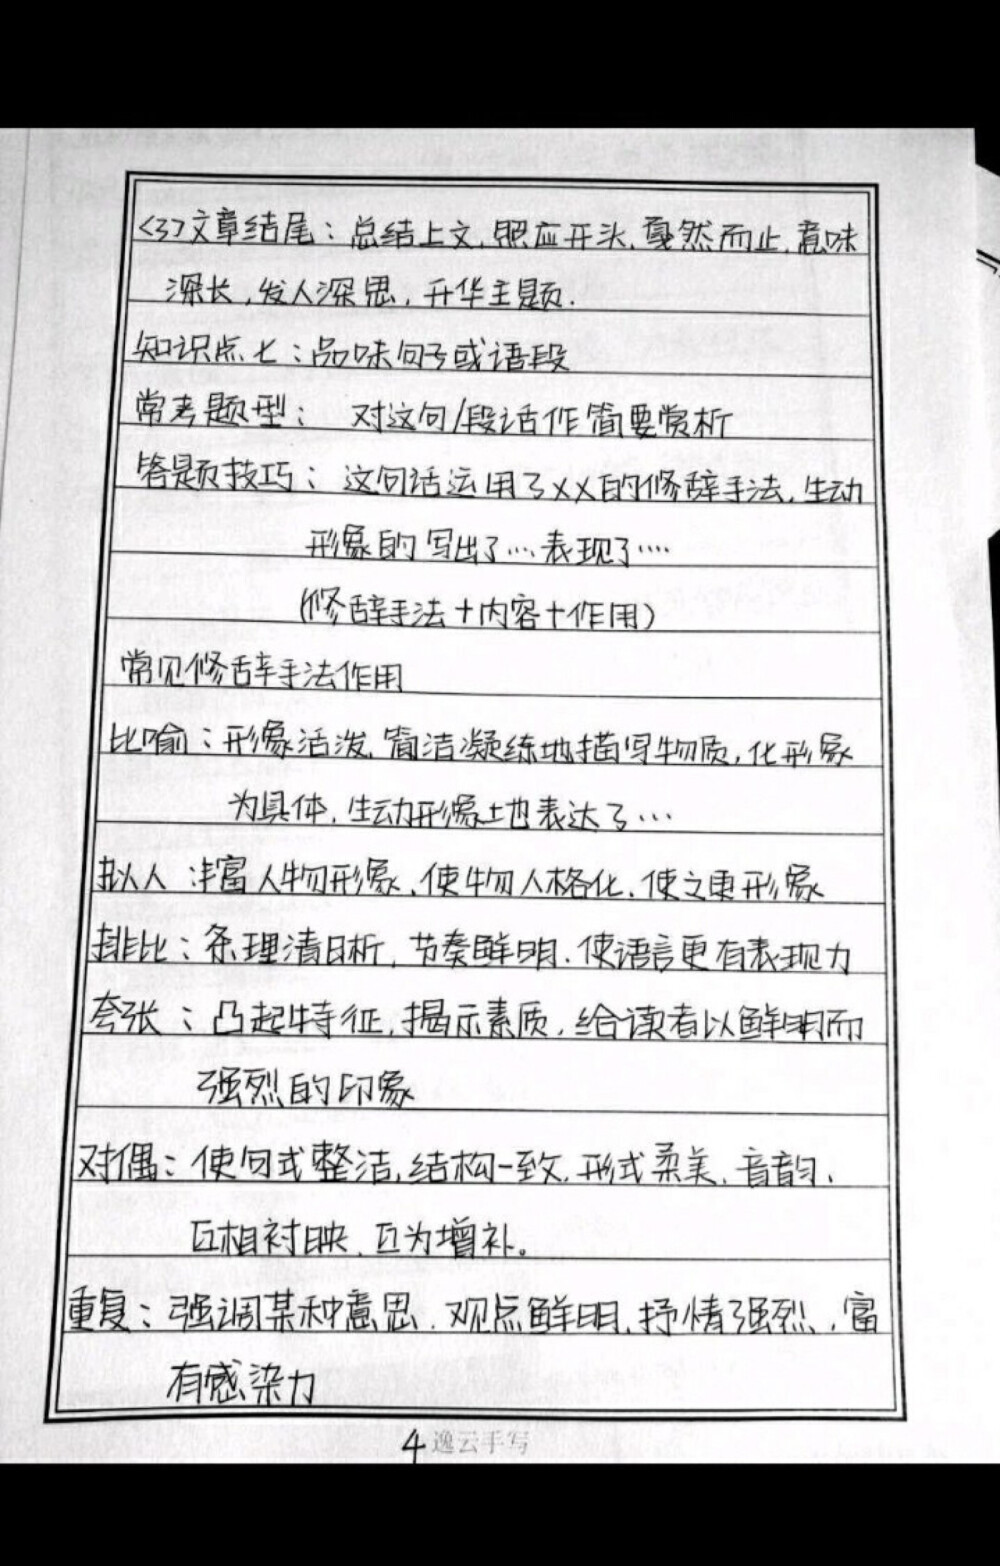 <3>文章结尾：总结上文，照应开头，戛然而止，意味
深长，发人深思，升华主题.
知识点七：品味句子或语段
常考题型： 对这句/段话作简要赏析
答题技巧：这句话运用了XX的修辞手法，生动
形象的写出了…表现了…
(修辞手法+内容+作用)
常见修辞手法作用
比喻：形象活泼，简洁凝练地描写物质，化形象
为具体，生动形象地表达了…
拟人 丰富人物形象，使物人格化，使之更形象
排比：条理清晰，节奏鲜明，使语言更有表现力
夸张：凸起特征，揭示素质，给读者以鲜明而
强烈的印象
对偶：使句式整洁，结构一致，形式柔美，音韵，
互相衬映，互为增补。
重复：强调某种意思，观点鲜明，抒情强烈，富
有感染力
4 逸云手写